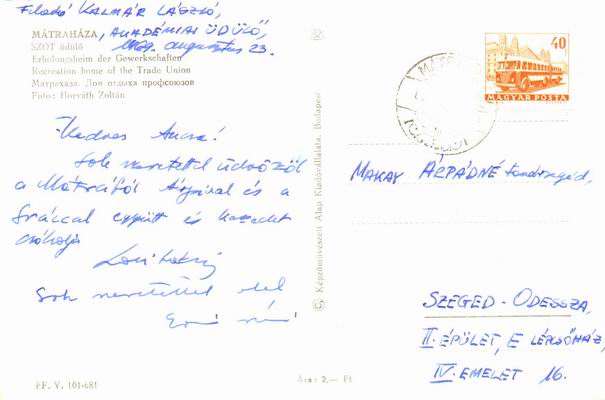 Feladó KALMÁR LÁSZLÓ,
MÁTRAHÁZA, AKADÉMIAI ÜDÜLŐ,
SZOT üdülő 1969. augusztus 23.
Erholungsheim der Gewerkschaften
Recreation home of the Trade Union
Матрахаза. Дом отдыха профсоюзов
Foto: Horváth Zoltán
Kedves Anna!
Sok szeretettel üdvözöl
a Mátrából Árpival és a
együtt és kezedet
csókolja
Sok szeretettel ölel
FF. V. 101-681
Ára: 2,— Ft
Képzőművészeti Alap Kiadóvállalata, Budapest
40
MAGYAR POSTA
MAKAY ÁRPÁDNÉ tanársegéd,
SZEGED - ODESSZA,
II. ÉPÜLET, E LÉPCSŐHÁZ,
IV. EMELET 16.